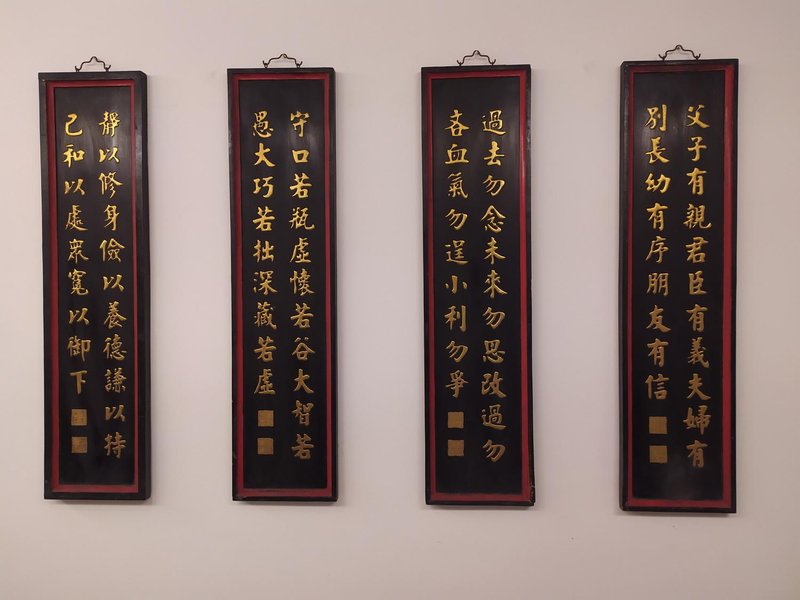 父子有親君臣有義夫婦有
別長幼有序朋友有信
過去勿念未來勿思改過勿
吝血氣勿逞小利勿爭
守口若瓶虛懷若谷大智若
愚大巧若拙深藏若虛
靜以修身儉以養德謙以持
己和以處眾寬以御下